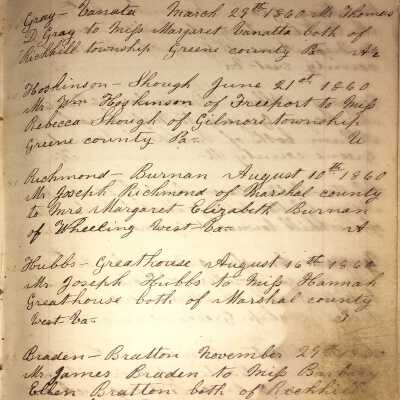 Gray - Vanata March 29th 1860 Mr Thomas
D Gray to Miss Margaret Vanatta both of
Richhill township Greene county Pa
Hoskinson - Shough June 21st 1860
Mr Wm Hoskinson of Freeport to Miss
Rebecca Shough of Gilmore township
Greene county Pa-
Richmond - Burnan August 10th 1860
Mr Joseph Richmond of Marshal county
to Mrs Margaret Elizabeth Burnan
of Wheeling West Va-
Hubbs - Greathouse August 16th 1860
Mr Joseph Hubbs to Miss Hannah
Greathouse both of Marshal county
West Va-
Braden - Bratton November 29th 1860
Mr James Braden to Miss
Ellen Bratton both of Richhill